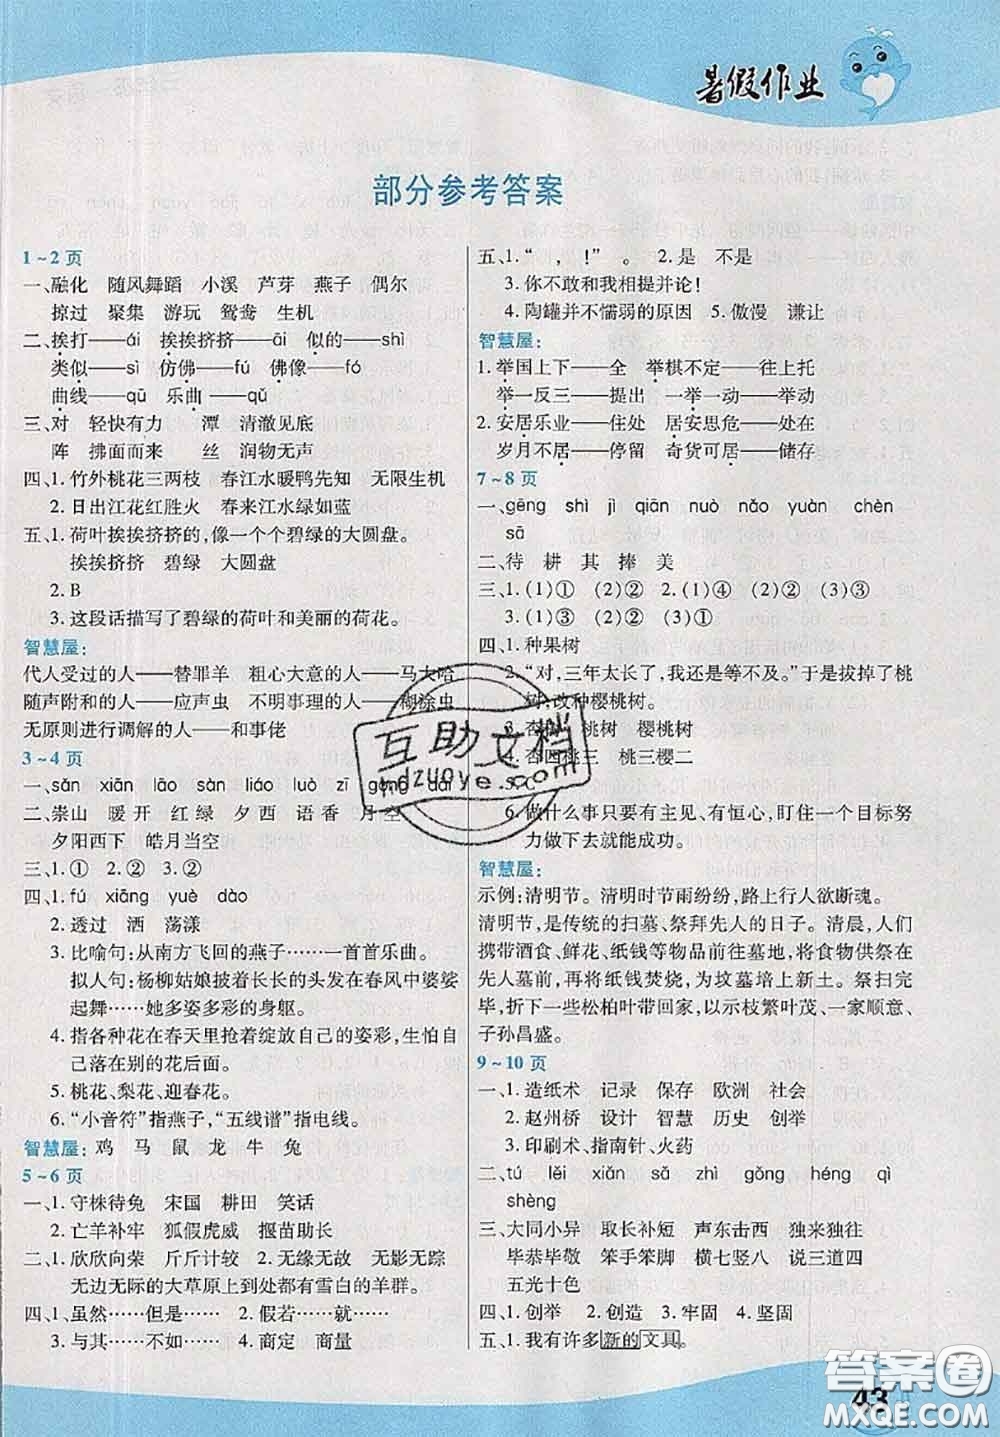 暑假作业
部分参考答案
1~2页
一、融化 随风舞蹈 小溪 芦芽 燕子 偶尔
掠过 聚集 游玩 鸳鸯 生机
二、挨打——ái 挨挨挤挤——āi 似的——shì
类似——sì 仿佛——fú 佛像——fó
曲线——qū 乐曲——qǔ
三、对 轻快有力 潭 清澈见底
阵 拂面而来 丝 润物无声
四、1.竹外桃花三两枝 春江水暖鸭先知 无限生机
2.日出江花红胜火 春来江水绿如蓝
五、1.荷叶挨挨挤挤的,像一个个碧绿的大圆盘。
挨挨挤挤 碧绿 大圆盘
2.B
3.这段话描写了碧绿的荷叶和美丽的荷花。
智慧屋:
代人受过的人——替罪羊 粗心大意的人——马大哈
随声附和的人——应声虫 不明事理的人——糊涂虫
无原则进行调解的人——和事佬
3~4页
一、sǎn xiān lāo sàn liáo luò zǐ gōng dāi
二、崇山 暖开 红绿 夕西 语香 月空
夕阳西下 皓月当空
三、1.② 2.② 3.①
四、1.fú xiāng yuè dào
2.透过 洒 荡漾
3.比喻句:从南方飞回的燕子……一首首乐曲。
拟人句:杨柳姑娘披着长长的头发在春风中婆娑
起舞……她多姿多彩的身躯。
4.指各种花在春天里抢着绽放自己的姿彩,生怕自
己落在别的花后面。
5.桃花、梨花、迎春花。
6.“小音符”指燕子,“五线谱”指电线。
智慧屋:鸡 马 鼠 龙 牛 兔
5~6页
一、1.守株待兔 宋国 耕田 笑话
2.亡羊补牢 狐假虎威 揠苗助长
二、1.欣欣向荣 斤斤计较 2.无缘无故 无影无踪
无边无际的大草原上到处都有雪白的羊群。
四、1.虽然……但是…… 2.假若……就……
3.与其……不如…… 4.商定 商量
五、1.“ ,！” 2.是 不是
3.你不敢和我相提并论！
4.陶罐并不懦弱的原因 5.傲慢 谦让
智慧屋:
1.举国上下——全 举棋不定——往上托
举一反三——提出 一举一动——举动
2.安居乐业——住处 居安思危——处在
岁月不居——停留 奇货可居——储存
7~8页
一、gēng shì jì qiān nuò nǎo yuàn chèn
sā
二、待 耕 其 捧 美
三、1.(1)① (2)② 2.(1)④ (2)③
3.(1)③ (2)① 4.(1)② (2)③
四、1.种果树
2.“对,三年太长了,我还是等不及。”于是拔掉了桃
树,改种樱桃树。
3.杏树 桃树 樱桃树
4.杏四桃三 桃三樱二
6.做什么事只要有主见、有恒心,盯住一个目标努
力做下去就能成功。
智慧屋:
示例:清明节。清明时节雨纷纷,路上行人欲断魂。
清明节,是传统的扫墓、祭拜先人的日子。清晨,人们
携带酒食、鲜花、纸钱等物品前往墓地,将食物供祭在
先人墓前,再将纸钱焚烧,为坟墓培上新土。祭扫完
毕,折下一些松柏叶带回家,以示枝繁叶茂、一家顺意、
子孙昌盛。
9~10页
一、1.造纸术 记录 保存 欧洲 社会
2.赵州桥 设计 智慧 历史 创举
3.印刷术、指南针、火药
二、tú lěi xiǎn sǎ zhì gǒng héng qì
shèng
三、大同小异 取长补短 声东击西 独来独往
毕恭毕敬 笨手笨脚 横七竖八 说三道四
五光十色
四、1.创举 2.创造 3.牢固 4.坚固
五、1.我有许多新的文具。
43
互助文档
hdzuoye.com
答案圈
MXQE.COM